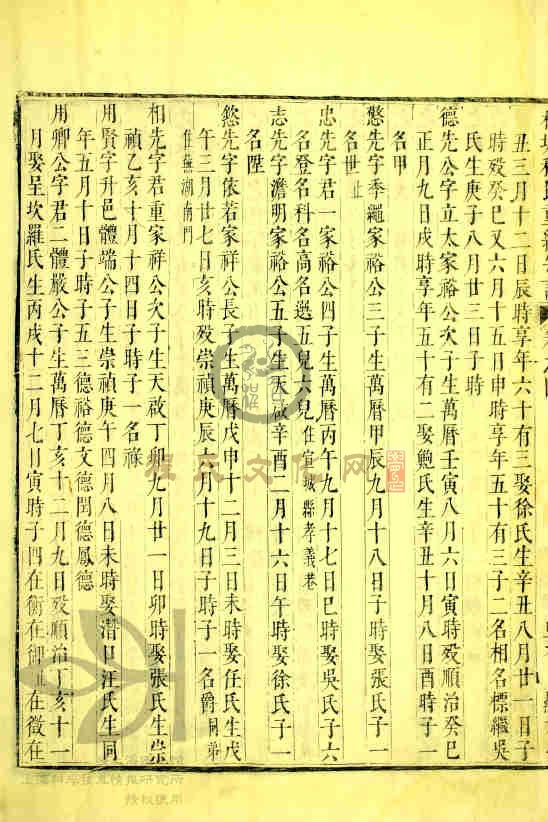 丑三月十二日辰時享年六十有三娶徐氏生辛丑八月廿一日子
時歿癸巳又六月十五日申時享年五十有三子二名相名標繼吳
氏生庚子八月廿三日子時
德先公字立太家裕公次子生萬曆壬寅八月六日寅時歿順治癸巳
正月九日戌時享年五十有二娶鮑氏生辛丑十月八日酉時子一
名甲
慜先字季繩家裕公三子生萬曆甲辰九月十八日子時娶張氏子一
名世止
忠先字君一家裕公四子生萬曆丙午九月十七日巳時娶吳氏子六
名登名科名高名選五兒六兒住宣城縣孝義巷
志先字澹明家裕公五子生天啟辛酉二月十六日午時娶徐氏子一
名陞
慾先字依若家祥公長子生萬曆戊申十二月三日未時娶任氏生戊
午三月廿七日亥時歿崇禎庚辰六月十九日子時子一名爵同弟
住蕪湖南門
相先字君重家祥公次子生天啟丁卯九月廿一日卯時娶張氏生崇
禎乙亥十月十四日子時子一名祿
用賢字升邑體端公子生崇禎庚午四月八日未時娶潛口汪氏生同
年五月十日子時子五三德裕德文德閏德鳳德
用卿公字君二體嚴公子生萬曆丁亥十二月九日歿順治丁亥十一
月娶呈坎羅氏生丙戌十二月七日寅時子四在衡在御在徵在
程氏文化网
授权使用